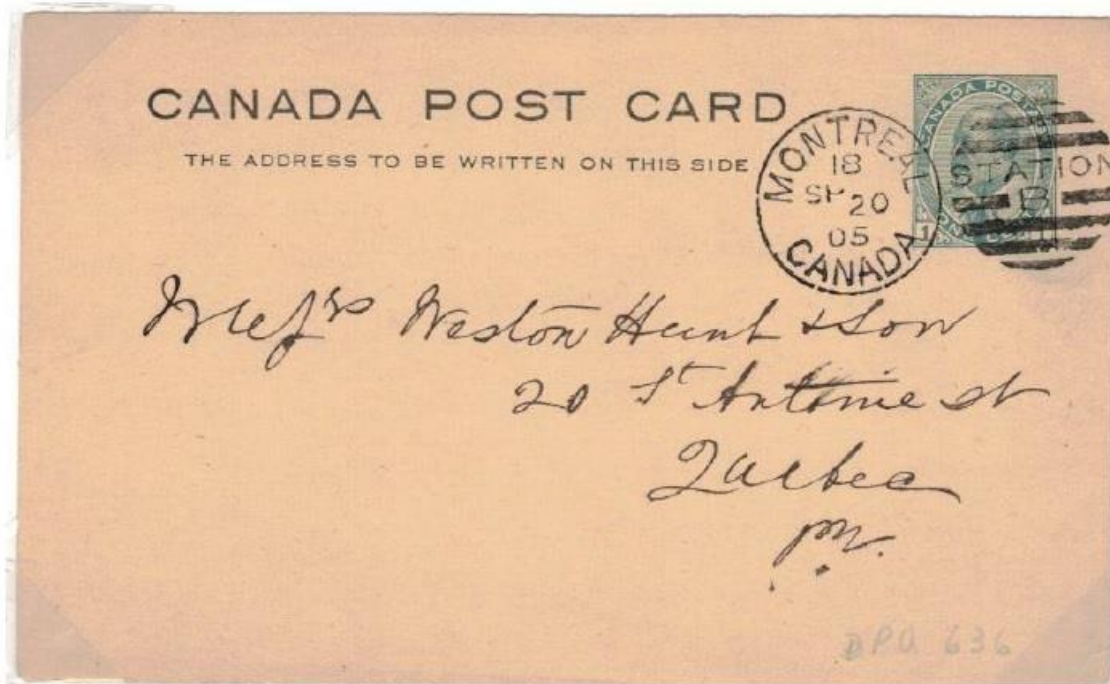 CANADA POST CARD
THE ADDRESS TO BE WRITTEN ON THIS SIDE
CANADA POST
1
MONTREAL
18
SP 20
05
CANADA
STATION
B
Messrs Weston Hunt & Son
20 St Antoine st
Quebec
DPO 636